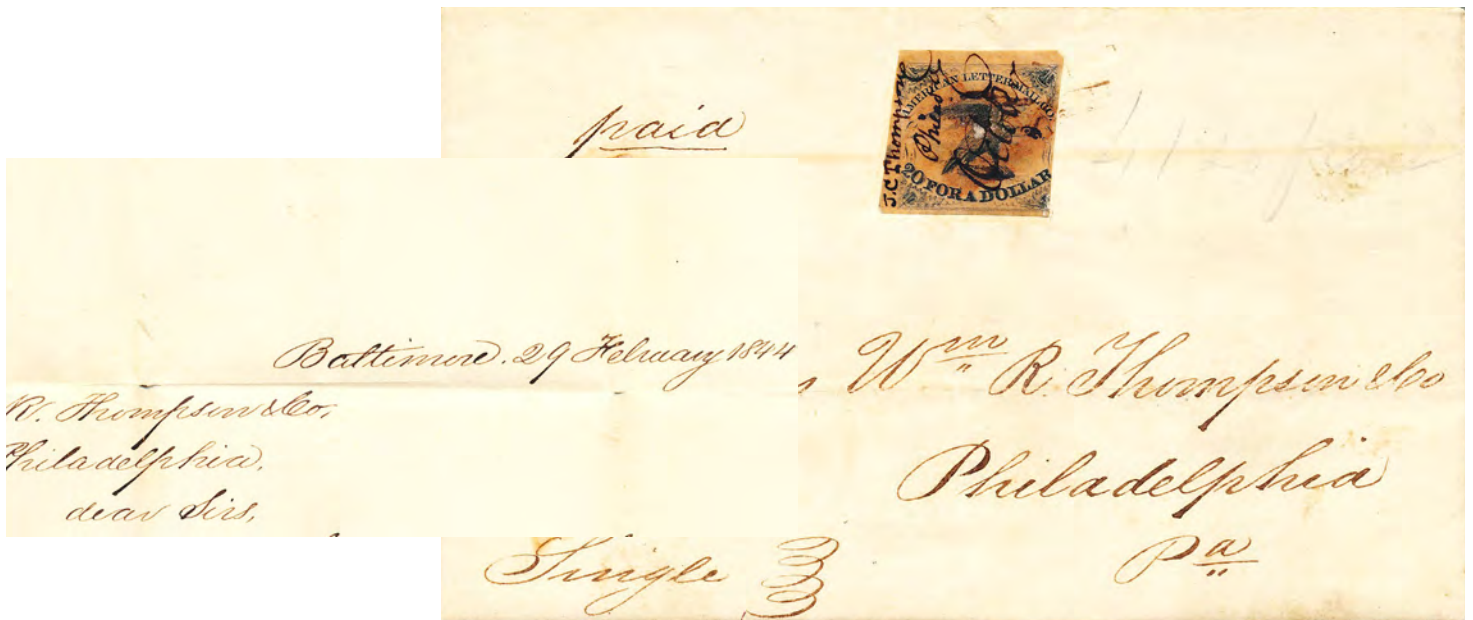 paid
AMERICAN LETTER MAIL CO.
20 FOR A DOLLAR
J.C Thompson
Baltimore. 29 February 1844
R. Thompson & Co,
Philadelphia,
dear Sirs,
Wm R. Thompson & Co
Philadelphia
Pa
Single